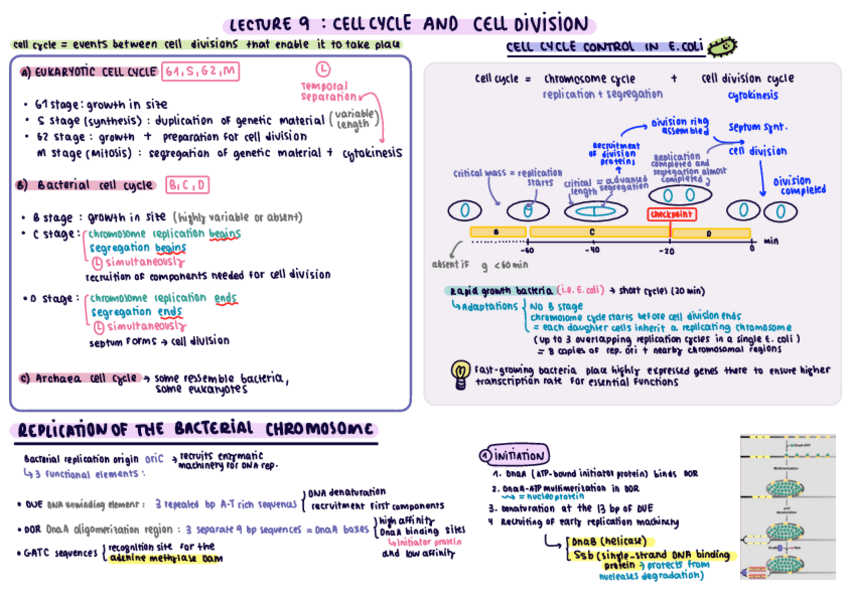 LECTURE 9 : CELL CYCLE AND CELL DIVISION
cell cycle = events between cell divisions that enable it to take place
A) EUKARYOTIC CELL CYCLE G1, S, G2, M
Temporal
separation
• G1 stage: growth in site
• S stage (synthesis) : duplication of genetic material (variable length)
• G2 stage : growth + preparation for cell division
M stage (Mitosis) : segregation of genetic material + cytokinesis
B) Bacterial cell cycle B, C, D
• B stage : growth in site (highly variable or absent)
• C stage : chromosome replication begins
segregation begins
simultaneously
recruition of components needed for cell division
• D stage : chromosome replication ends
segregation ends
simultaneously
septum forms → cell division
C) Archaea cell cycle → some ressemble bacteria,
some eukaryotes
CELL CYCLE CONTROL IN E.COLI
cell cycle = chromosome cycle + cell division cycle
replication + segregation cytokinesis
Division ring
assembled
Septum synt.
cell division
Recruitment
of division
proteins
Replication
completed and
segregation almost
completed
critical mass = replication
starts
critical = advanced
length segregation
Division
completed
checkpoint
B C D
-60 -40 -20 0 min
absent if g < 60 min
Rapid growth bacteria (i.e. E. coli) → short cycles (20 min)
↳ Adaptations NO B stage
chromosome cycle starts before cell division ends
= each daughter cells inherit a replicating chromosome
(up to 3 overlapping replication cycles in a single E. coli)
= 8 copies of rep. ori + nearby chromosomal regions
Fast-growing bacteria place highly expressed genes there to ensure higher
transcription rate for essential functions
REPLICATION OF THE BACTERIAL CHROMOSOME
Bacterial replication origin oriC → recruits enzymatic
machinery for DNA rep.
↳ 3 functional elements :
• DUE DNA unwinding element : 3 repeated bp A-T rich sequences DNA denaturation
recruitment first components
• DOR DnaA oligomerization region : 3 separate 9 bp sequences = DnaA boxes high affinity
DnaA binding sites
↳ initiator protein
and low affinity
• GATC sequences recognition site for the
adenine methylase Dam
1) INITIATION
1. DnaA (ATP-bound initiator protein) binds DOR
2. DnaA-ATP multimerization in DOR
= nucleoprotein
3. Denaturation at the 13 bp of DUE
4 Recruiting of early replication machinery
DnaB (helicase)
Ssb (single-strand DNA binding
protein → protects from
nucleases degradation)